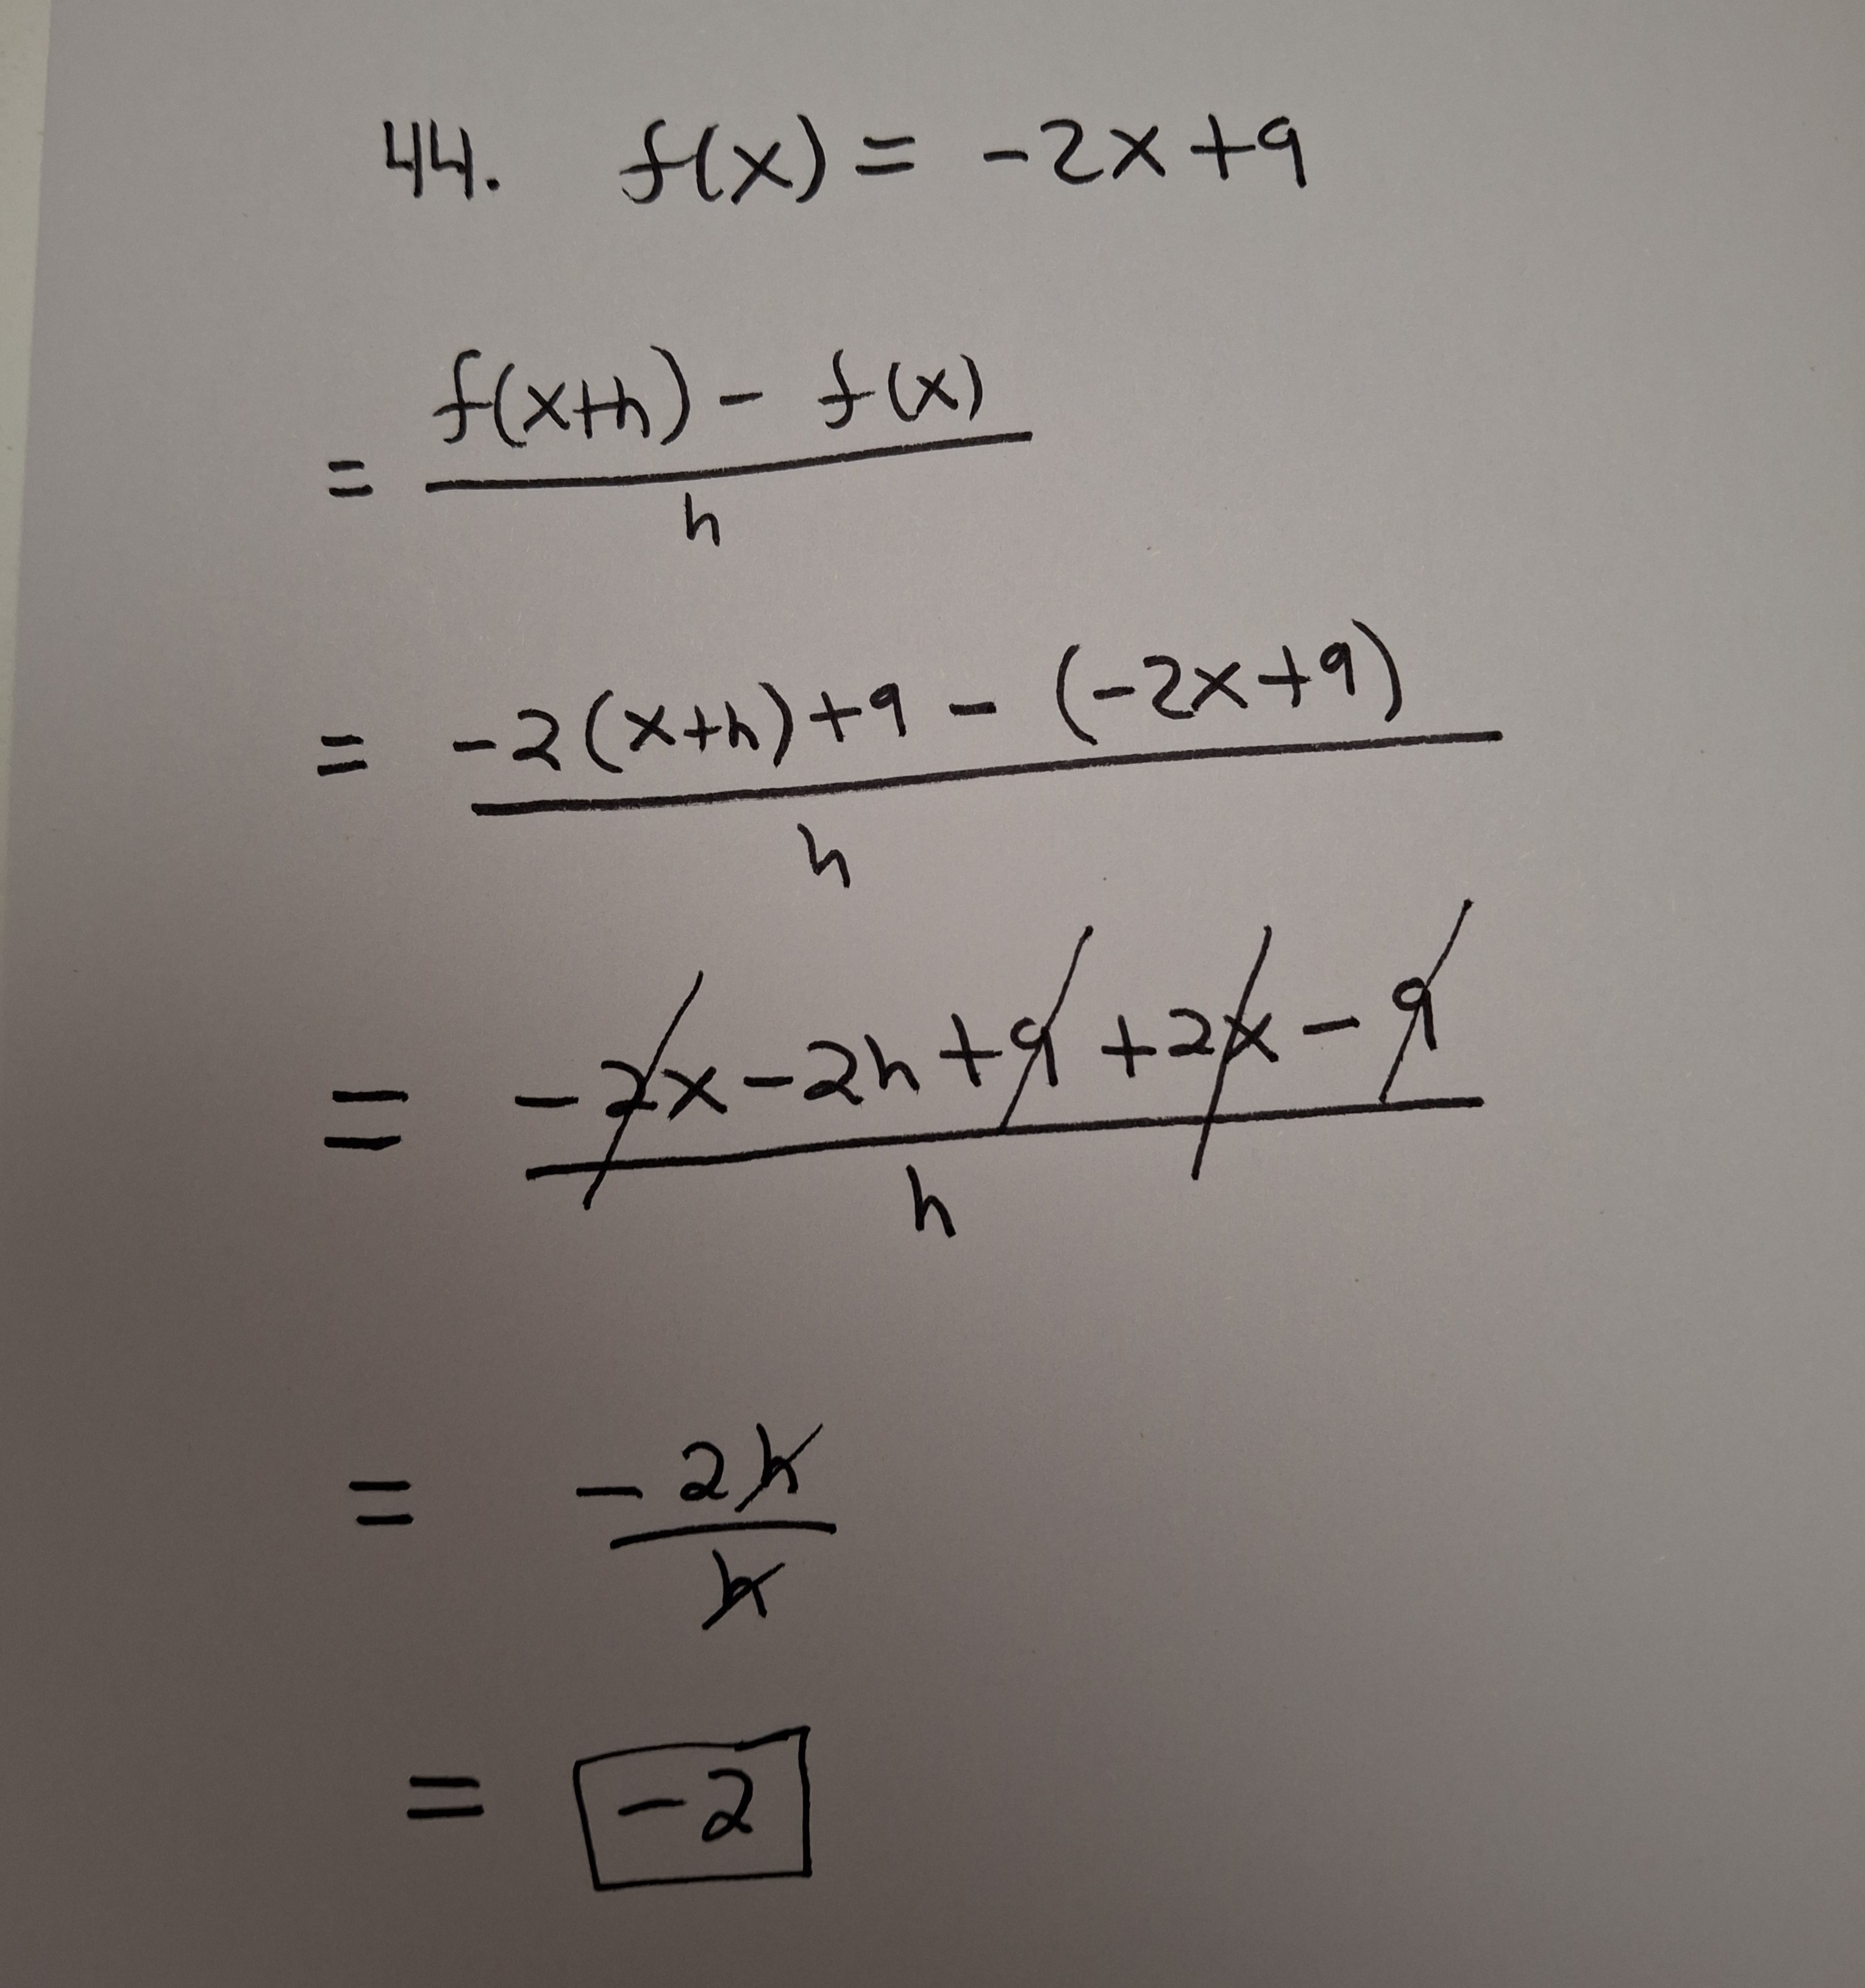 44. f(x) = -2x+9
= f(x+h) - f(x) / h
= -2(x+h)+9 - (-2x+9) / h
= -2x-2h+9+2x-9 / h
= -2h / h
= -2